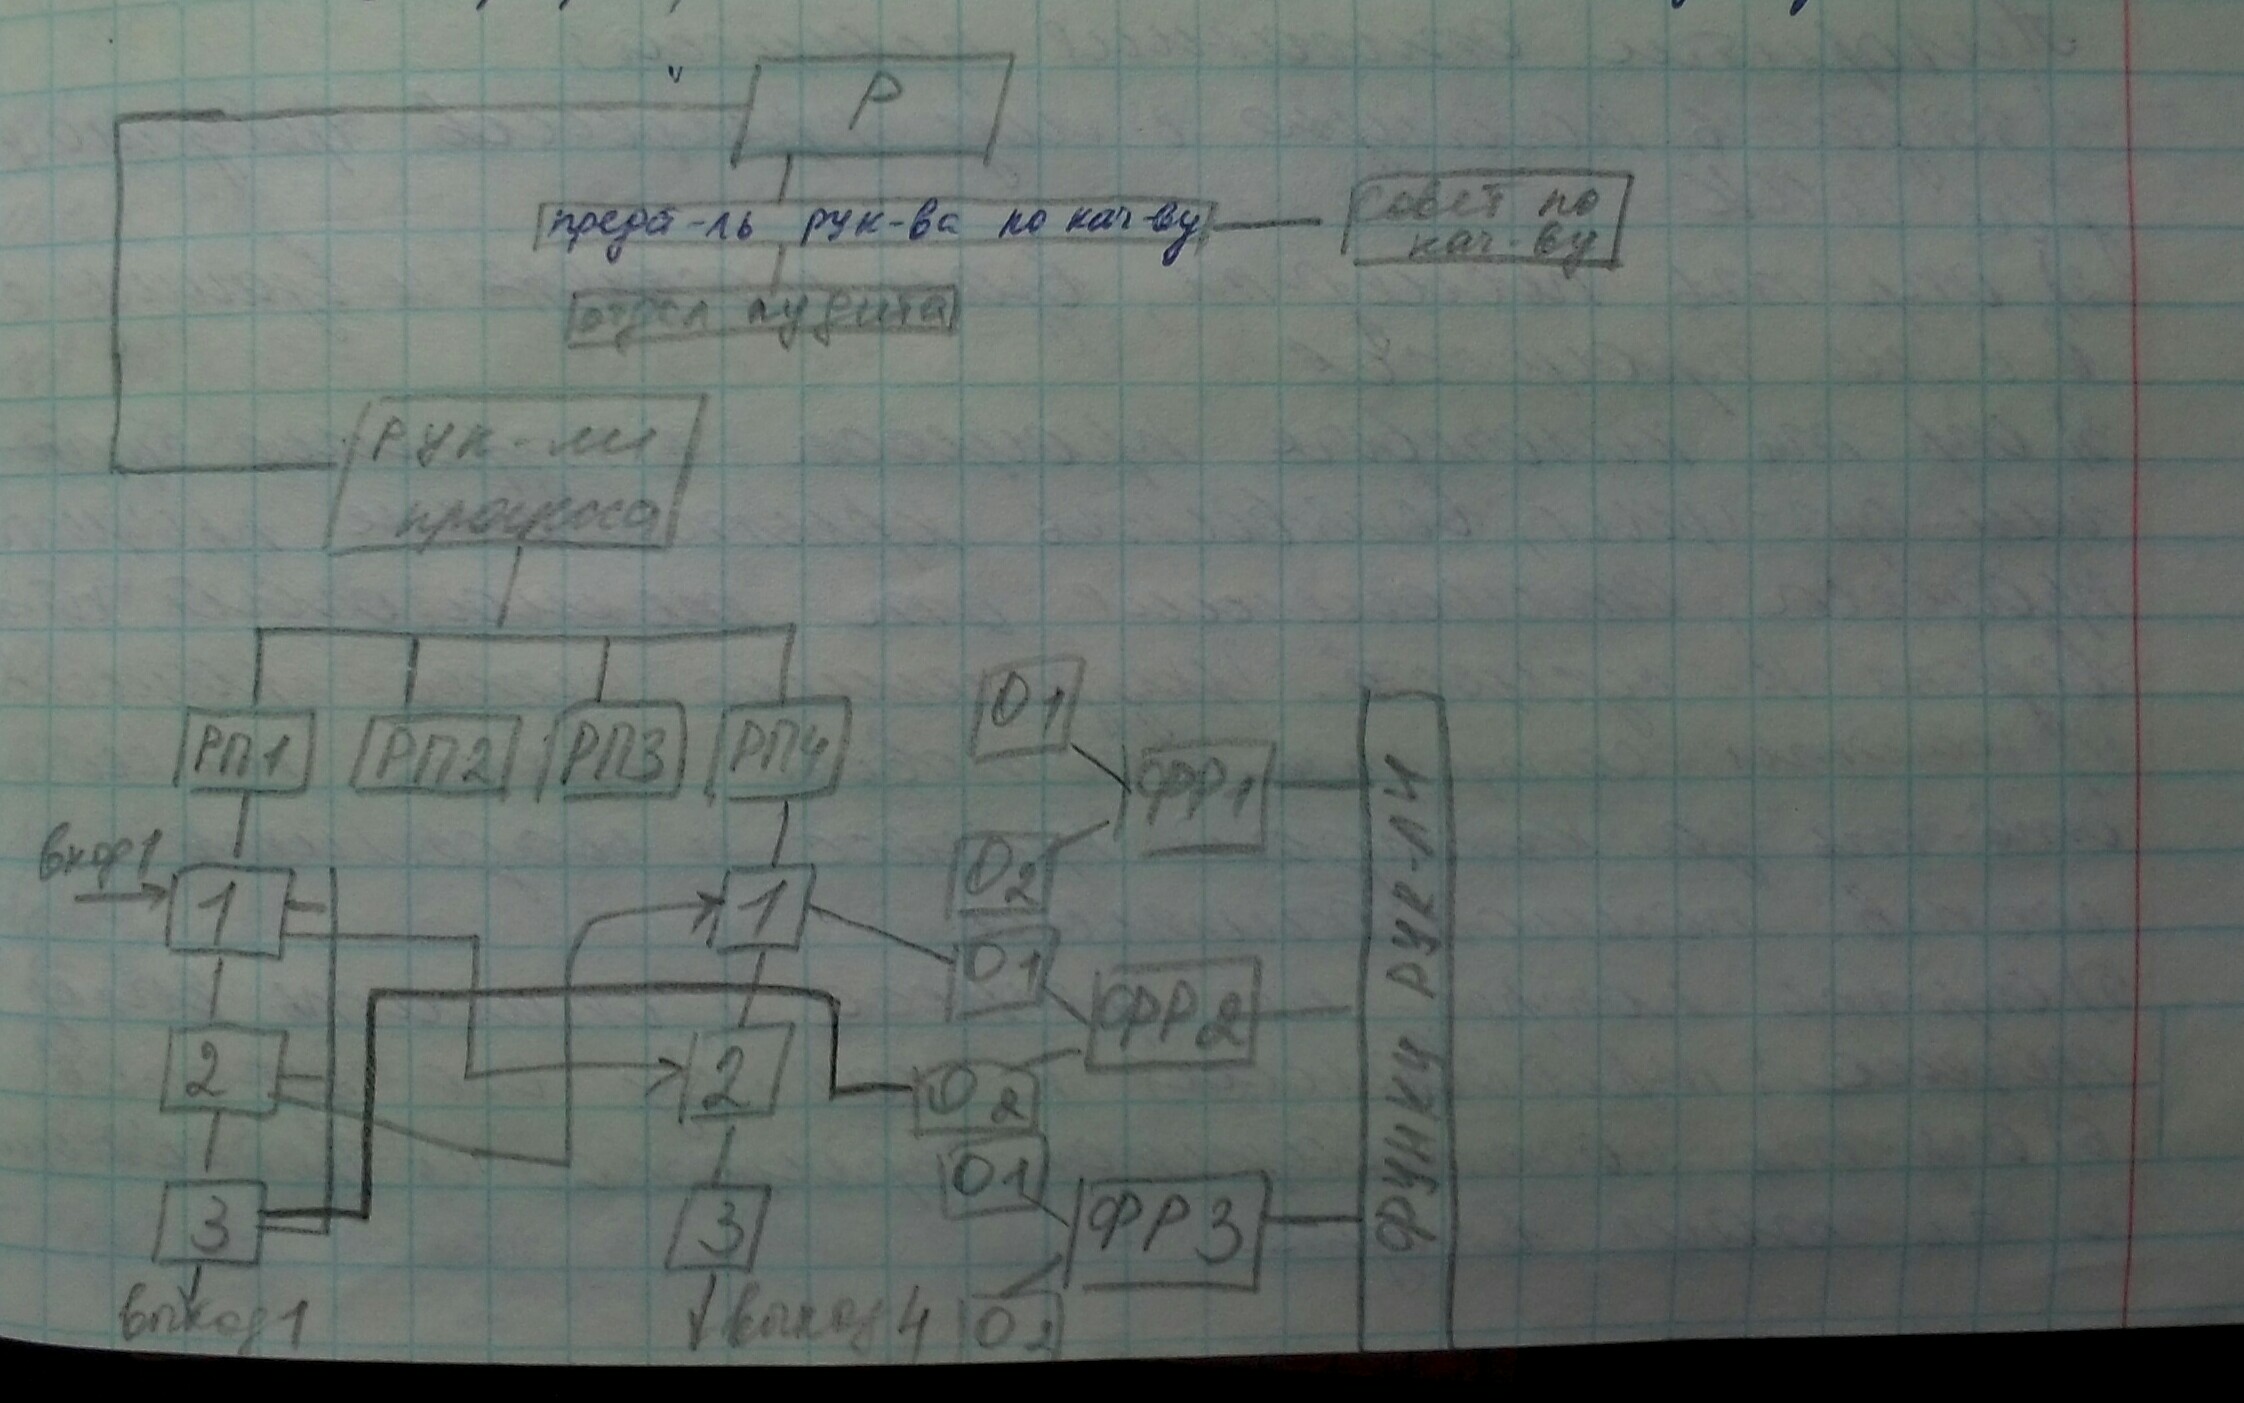 Р
предс-ль рук-ва по кач-ву
совет по
кач-ву
отдел аудита
рук-ли
процесса
РП1 РП2 РП3 РП4
О1
ФР1
О2
вход1
1
1
О1
ФР2
2
2
О2
О1
3
3
ФР3
О2
выход1
выход 4
ФУНКЦ РУК-ЛИ